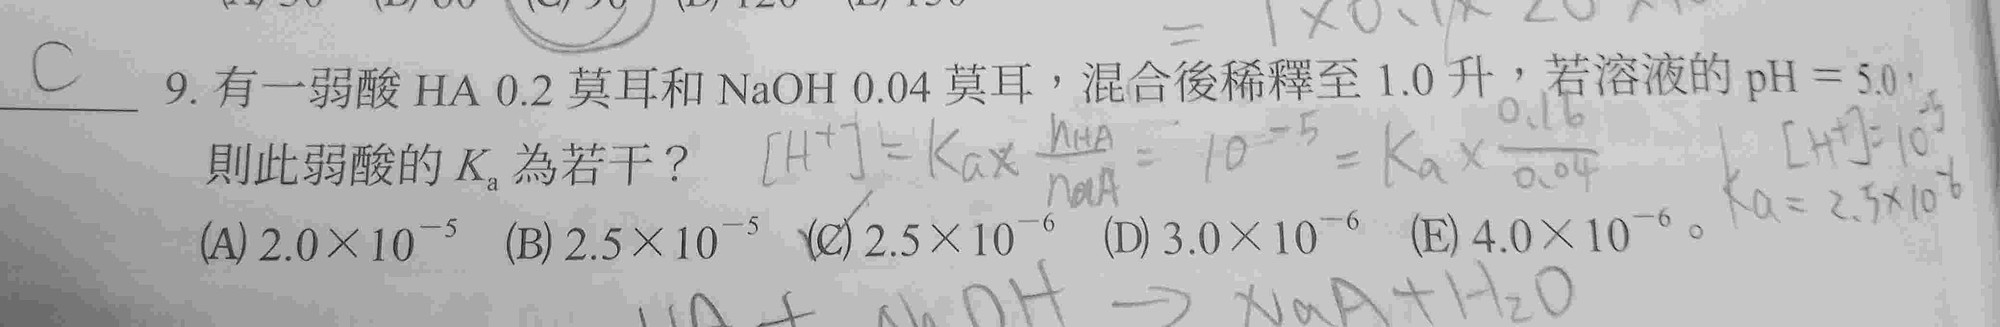 = 1×0.1×20
C
9. 有一弱酸 HA 0.2 莫耳和 NaOH 0.04 莫耳，混合後稀釋至 1.0 升，若溶液的 pH = 5.0，
則此弱酸的 Ka 為若干？ [H⁺] = Ka × nHA/nNaA = 10⁻⁵ = Ka × 0.16/0.04 [H⁺]=10⁻⁵
Ka = 2.5×10⁻⁶
(A) 2.0×10⁻⁵ (B) 2.5×10⁻⁵ (C) 2.5×10⁻⁶ (D) 3.0×10⁻⁶ (E) 4.0×10⁻⁶。
HA + NaOH → NaA + H₂O